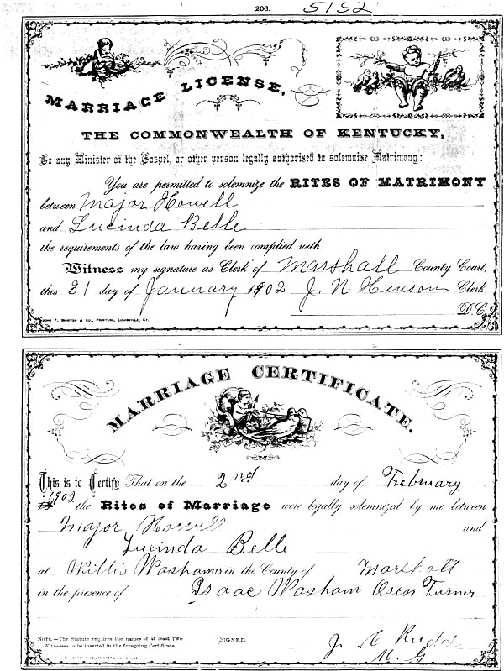 206. 5152
MARRIAGE LICENSE,
THE COMMONWEALTH OF KENTUCKY,
To any Minister of the Gospel, or other person legally authorised to solemnize Matrimony:
You are permitted to solemnize the RITES OF MATRIMONY
between Major Howell
and Lucinda Belle
the requirements of the law having been complied with
Witness my signature as Clerk of Marshall County Court,
this 21 day of January 1902 J. N Henson Clerk
D.C.
MARRIAGE CERTIFICATE.
This is to Certify That on the 2nd day of February
1902 the Rites of Marriage were legally solemnized by me between
Major Howell and
Lucinda Belle
at Willis Washams in the County of Marshall
in the presence of Isaac Washam Oscar Turner
NOTE.—The Statute requires the names of at least two
Witnesses to be inserted in the foregoing Certificate.
SIGNED.
J. N.
M. G.